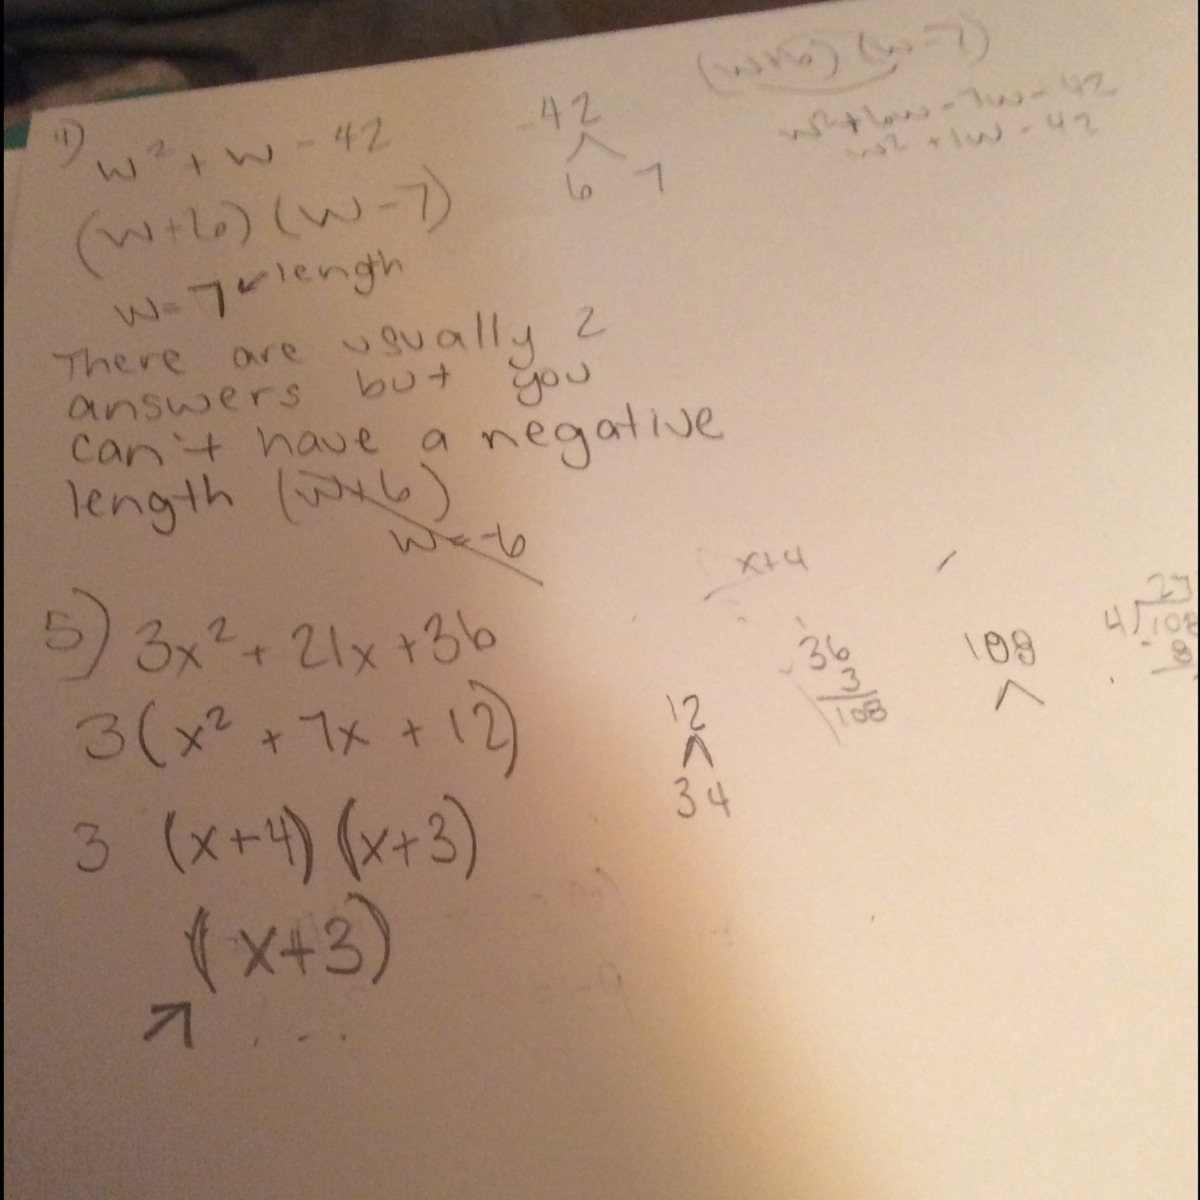 4) w² + w - 42
-42
6 7
(w+6) (w-7)
w²+6w-7w-42
w² +1w-42
(w+6) (w-7)
w=7 ↙ length
There are usually 2
answers but you
can't have a negative
length (w+6)
w=-6
5) 3x² + 21x + 36
3(x² + 7x + 12)
3 (x+4) (x+3)
(x+3)
↗
x+4
12
3 4
36
3
108
108
4)108
8